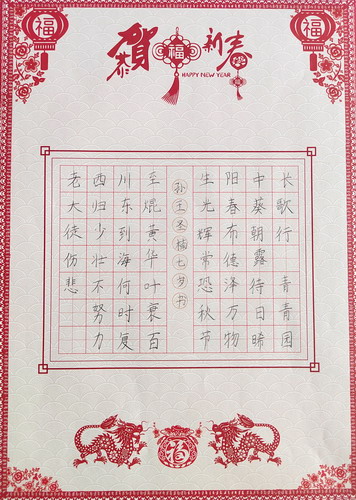 福
恭贺
福
新春
HAPPY NEW YEAR
福
长歌行 青青园
中葵朝露待日晞
阳春布德泽万物
生光辉常恐秋节
孙王圣楠七书
至焜黄华叶衰百
川东到海何时复
西归少壮不努力
老大徒伤悲
福